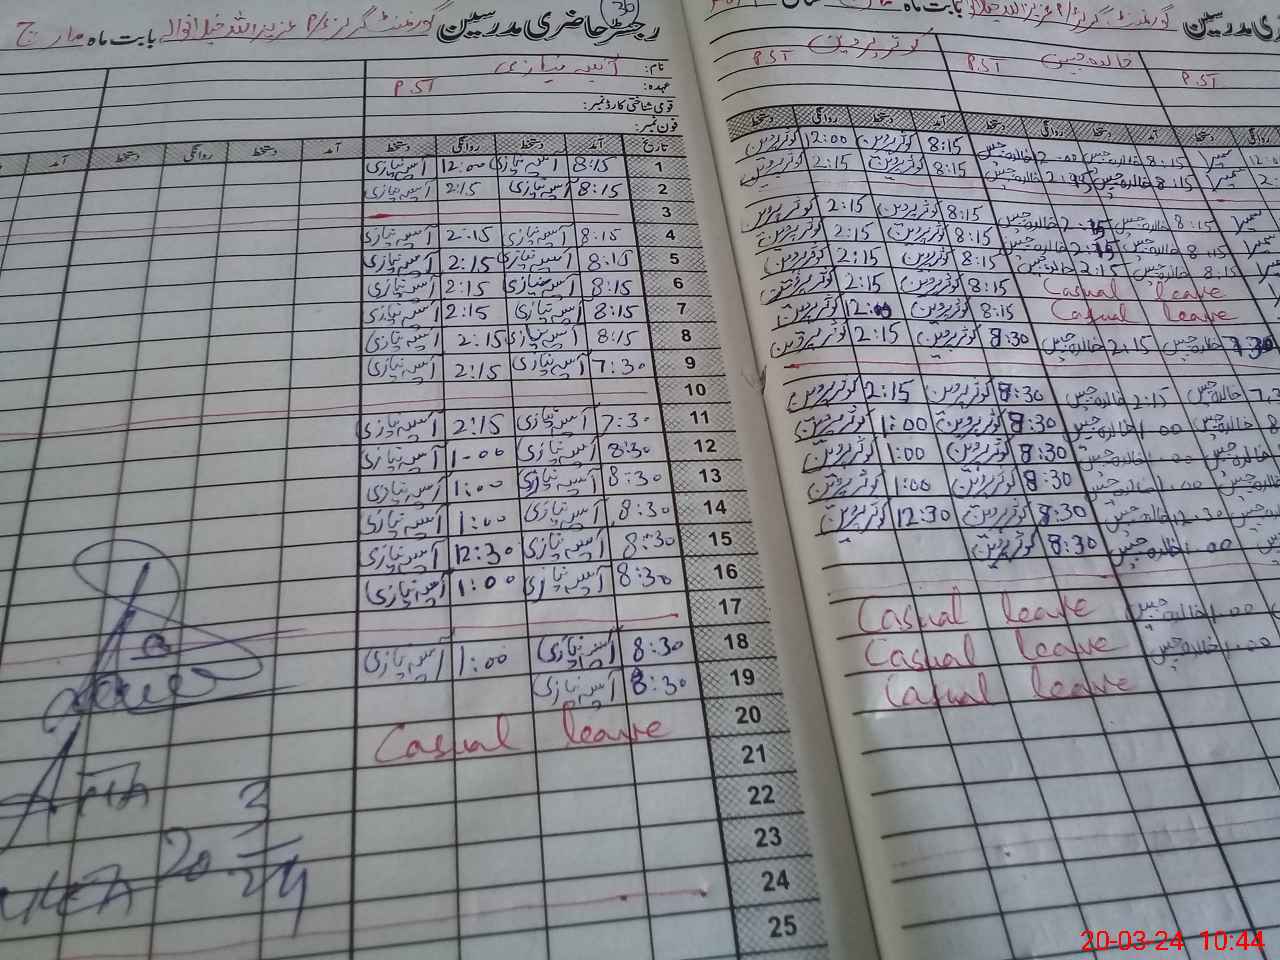 رجسٹر حاضری مدرسین گورنمنٹ گرلز P/S عزیز اللہ خیل انوالہ بابت ماہ مارچ
نام: آسیہ نیازی
عہدہ: P.ST
قومی شناختی کارڈ نمبر:
فون نمبر:
تاریخ آمد دستخط روانگی دستخط آمد دستخط روانگی دستخط آمد
1 8:15 آسیہ نیازی 12:00 آسیہ نیازی
2 8:15 آسیہ نیازی 2:15 آسیہ نیازی
3
4 8:15 آسیہ نیازی 2:15 آسیہ نیازی
5 8:15 آسیہ نیازی 2:15 آسیہ نیازی
6 8:15 آسیہ نیازی 2:15 آسیہ نیازی
7 8:15 آسیہ نیازی 2:15 آسیہ نیازی
8 8:15 آسیہ نیازی 2:15 آسیہ نیازی
9 7:30 آسیہ نیازی 2:15 آسیہ نیازی
10
11 7:30 آسیہ نیازی 2:15 آسیہ نیازی
12 8:30 آسیہ نیازی 1-00 آسیہ نیازی
13 8:30 آسیہ نیازی 1:00 آسیہ نیازی
14 8:30 آسیہ نیازی 1:00 آسیہ نیازی
15 8:30 آسیہ نیازی 12:30 آسیہ نیازی
16 8:30 آسیہ نیازی 1:00 آسیہ نیازی
17
18 8:30 آسیہ نیازی 1:00 آسیہ نیازی
19 8:30 آسیہ نیازی
20 Casual leave
21
22
23
24
25
20 3
24
مدرسین گورنمنٹ گرلز P/S عزیز اللہ بابت ماہ
P.ST خالدہ جبیں P.ST کوثر پروین P.ST
روانگی دستخط آمد دستخط روانگی دستخط آمد دستخط روانگی دستخط
8:15 خالدہ جبیں 2:00 خالدہ جبیں 8:15 کوثر پروین 12:00 کوثر پروین
8:15 خالدہ جبیں 2:15 خالدہ جبیں 8:15 کوثر پروین 2:15 کوثر پروین
8:15 خالدہ جبیں 2:15 خالدہ جبیں 8:15 کوثر پروین 2:15 کوثر پروین
8:15 خالدہ جبیں 2:15 خالدہ جبیں 8:15 کوثر پروین 2:15 کوثر پروین
8:15 خالدہ جبیں 2:15 خالدہ جبیں 8:15 کوثر پروین 2:15 کوثر پروین
Casual leave 8:15 کوثر پروین 2:15 کوثر پروین
Casual leave 8:15 کوثر پروین 12:00 کوثر پروین
7:30 خالدہ جبیں 2:15 خالدہ جبیں 8:30 کوثر پروین 2:15 کوثر پروین
خالدہ جبیں 2:15 خالدہ جبیں 8:30 کوثر پروین 2:15 کوثر پروین
خالدہ جبیں 1:00 خالدہ جبیں 8:30 کوثر پروین 1:00 کوثر پروین
خالدہ جبیں 1:00 خالدہ جبیں 8:30 کوثر پروین 1:00 کوثر پروین
خالدہ جبیں 1:00 خالدہ جبیں 8:30 کوثر پروین 1:00 کوثر پروین
12:30 خالدہ جبیں 8:30 کوثر پروین 12:30 کوثر پروین
1:00 خالدہ جبیں 8:30 کوثر پروین
1:00 خالدہ جبیں Casual leave
1:00 خالدہ جبیں Casual leave
Casual leave
20-03-24 10:44